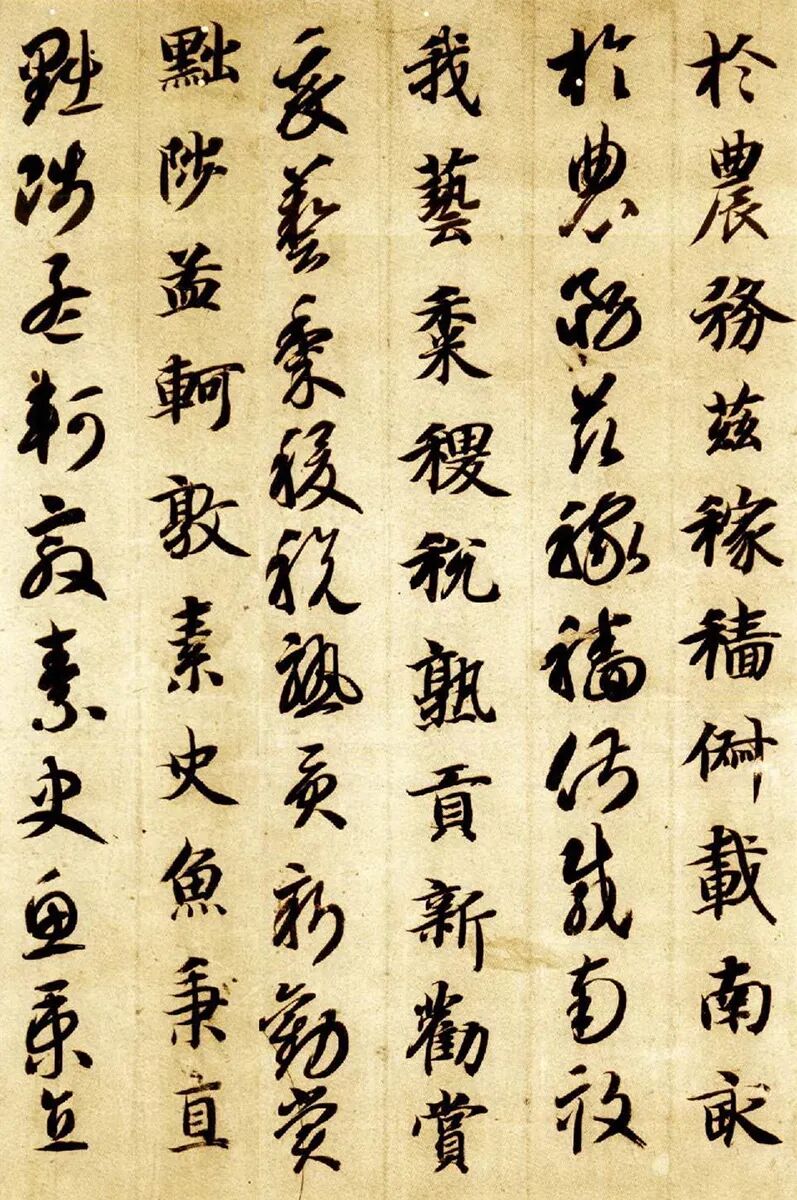 於農務茲稼穡俶載南畝
於農務茲稼穡俶載南畝
我藝黍稷稅熟貢新勸賞
我藝黍稷稅熟貢新勸賞
黜陟孟軻敦素史魚秉直
黜陟孟軻敦素史魚秉直